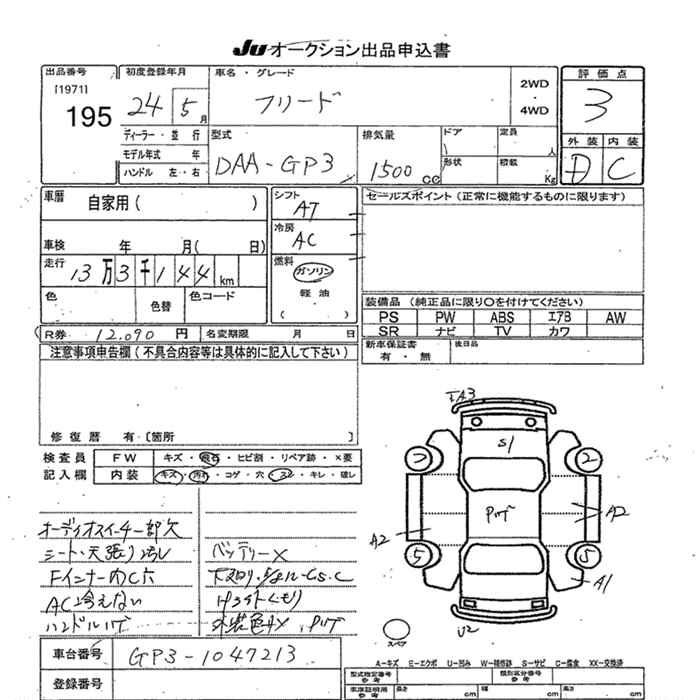 JU オークション出品申込書
出品番号
[1971]
195
初度登録年月
24 5月
車名・グレード
フリード
2WD
・
4WD
評価点
3
外装 内装
D C
ディーラー・並行
モデル年式 年
ハンドル 左・右
型式
DAA-GP3
排気量
1500cc
ドア
定員
人
形状
積載
Kg
車歴
自家用( )
車検 年 月( 日)
走行
13万3千144km
色
色替
色コード
R券 12,090円
名変期限 月 日
シフト
AT
冷房
AC
燃料
ガソリン
軽油
( )
セールスポイント(正常に機能するものに限ります)
装備品(純正品に限り○を付けてください)
PS PW ABS エアB AW
SR ナビ TV カワ
新車保証書
有・無
後日品
注意事項申告欄(不具合内容等は具体的に記入して下さい)
修復歴 有・[箇所 ]
検査員
記入欄
FW キズ・飛石・ヒビ割・リペア跡・×要
内装 キズ・汚れ・コゲ・穴・スレ・キレ・破レ
オーディオスイーチ一部欠
シート・天張り汚レ
Fインナー内C穴
AC冷えない
ハンドルハゲ
バッテリー×
下廻り・
Hライトくもり
外装色
A3
S1
2
2
ハゲ
A2
A2
5
5
A1
U2
スペア
車台番号 GP3-1047213
登録番号
A-キズ E-エクボ U-凹み W-補修跡 S-サビ C-腐食 XX-交換済
型式指定番号
参考
類別区分番号
参考
車庫証明用
参考
長さ cm
幅 cm
高さ cm